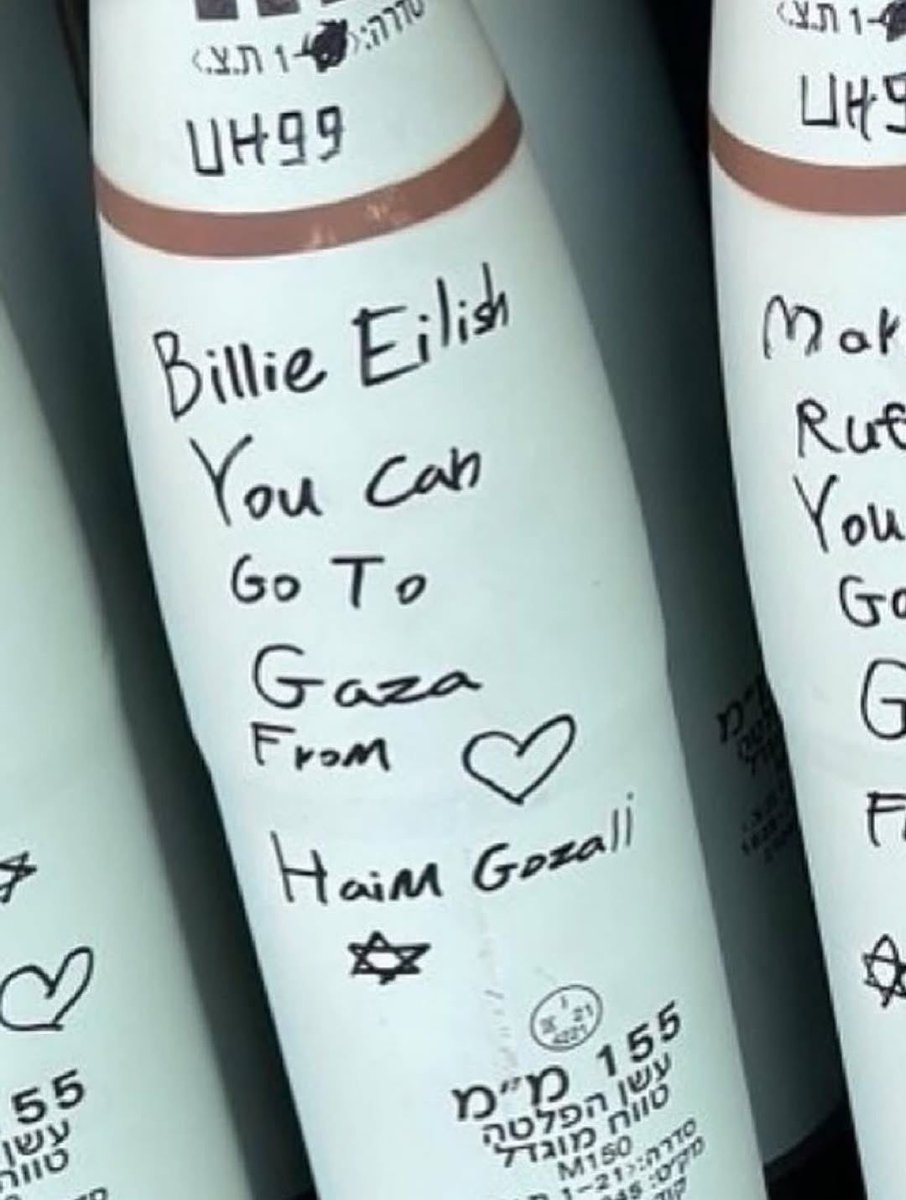 UH99
Billie Eilish
You Can
Go To
Gaza
From
Haim Gozali
155 מ״מ
עשן הפלטה
טווח מוגדל
M150
סדרה:
UH9
Mak
You
Go
G
F
55
עשן